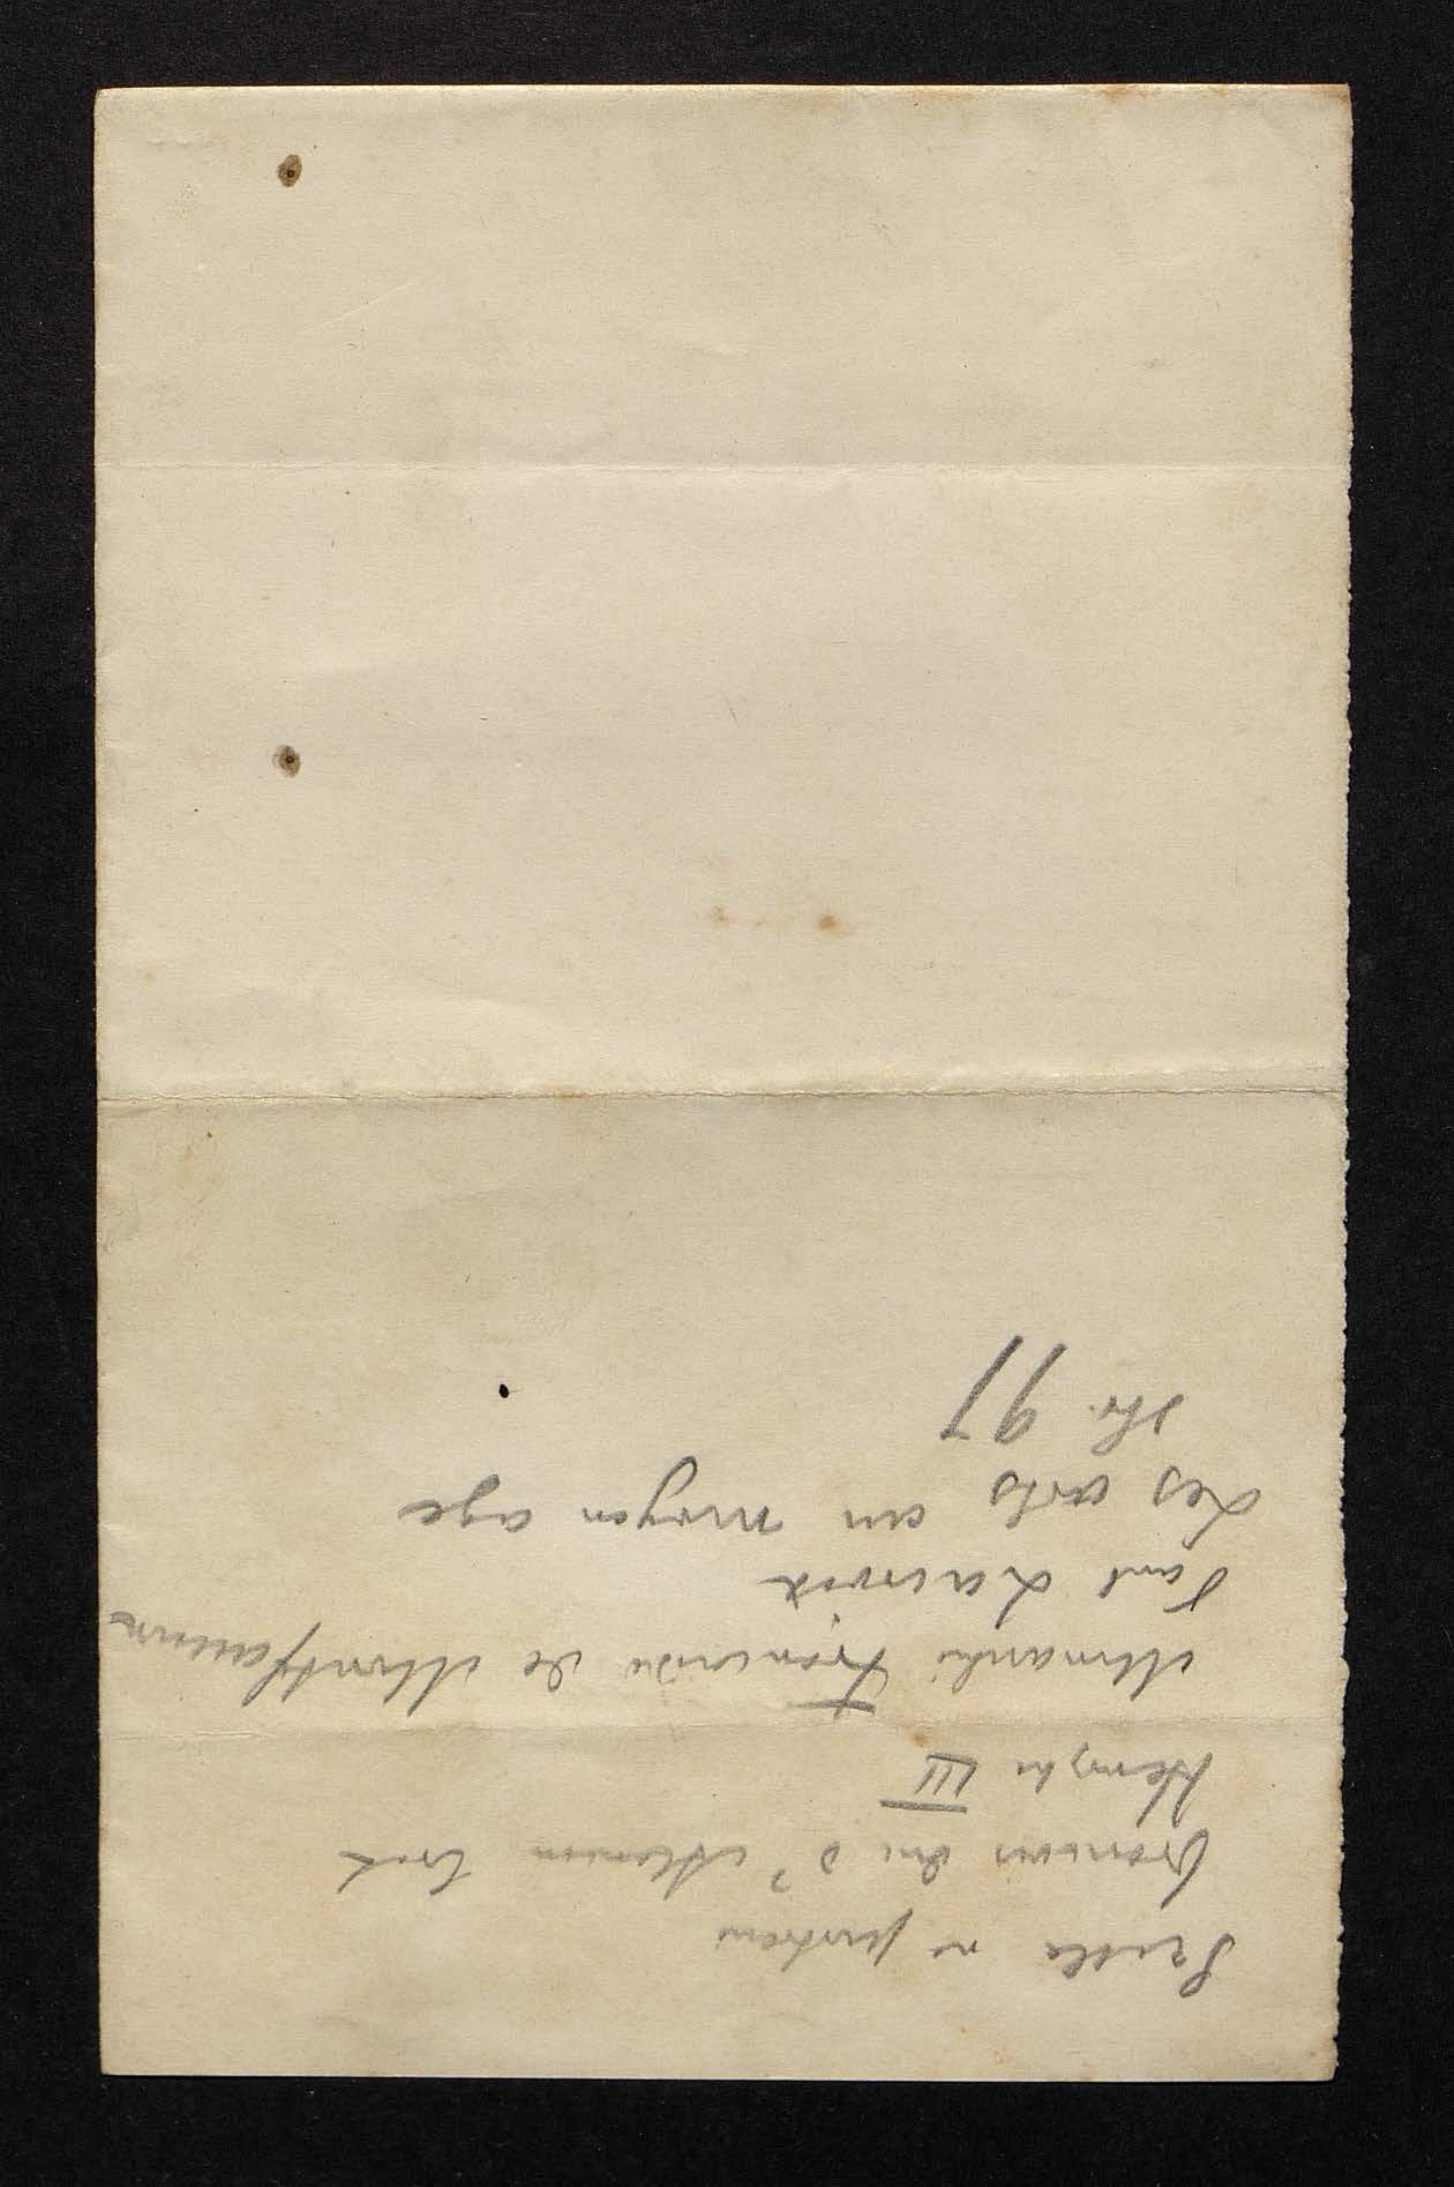 Szilla w postaci
Francois duc d'Alencon brat
Henryka III
Armand Francois de Montfaucon
Paul Lacroix
Les arts au moyen age
str. 97